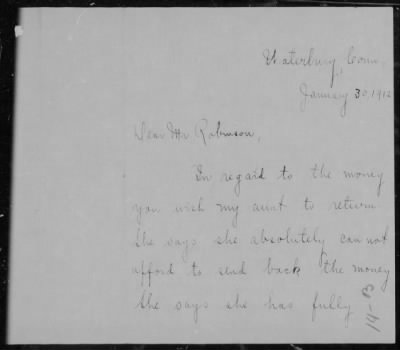 Waterbury, Conn,
January 30, 1912
Dear Mr Robinson,
In regard to the money
you wish my aunt to return
she says she absolutely can not
afford to send back the money
She says she has fully
14-B